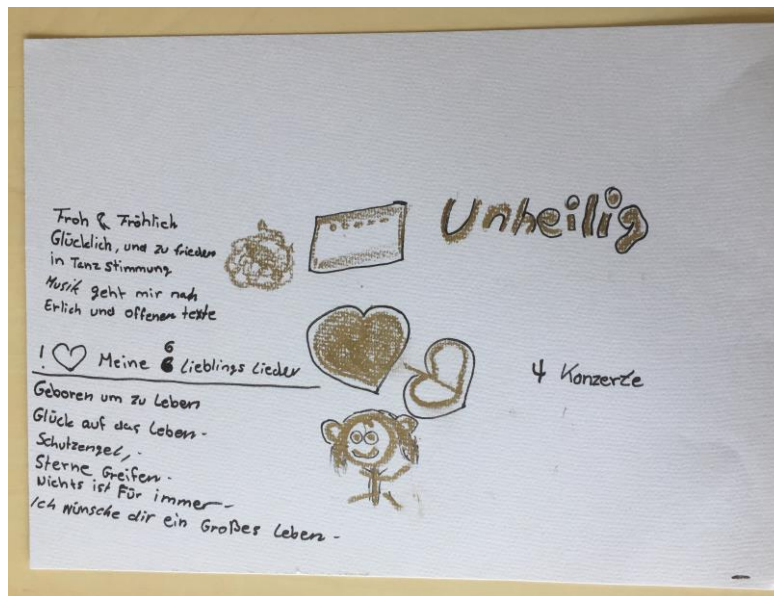 Unheilig
Froh & Fröhlich
Glücklich, und zu frieden
in Tanz Stimmung
Musik geht mir nah
Erlich und offenen texte
! Meine 6 Lieblings Lieder
4 Konzerte
Geboren um zu Leben
Glück auf das Leben -
Schutzengel, -
Sterne Greifen -
Nichts ist Für immer -
Ich wünsche dir ein Großes Leben -